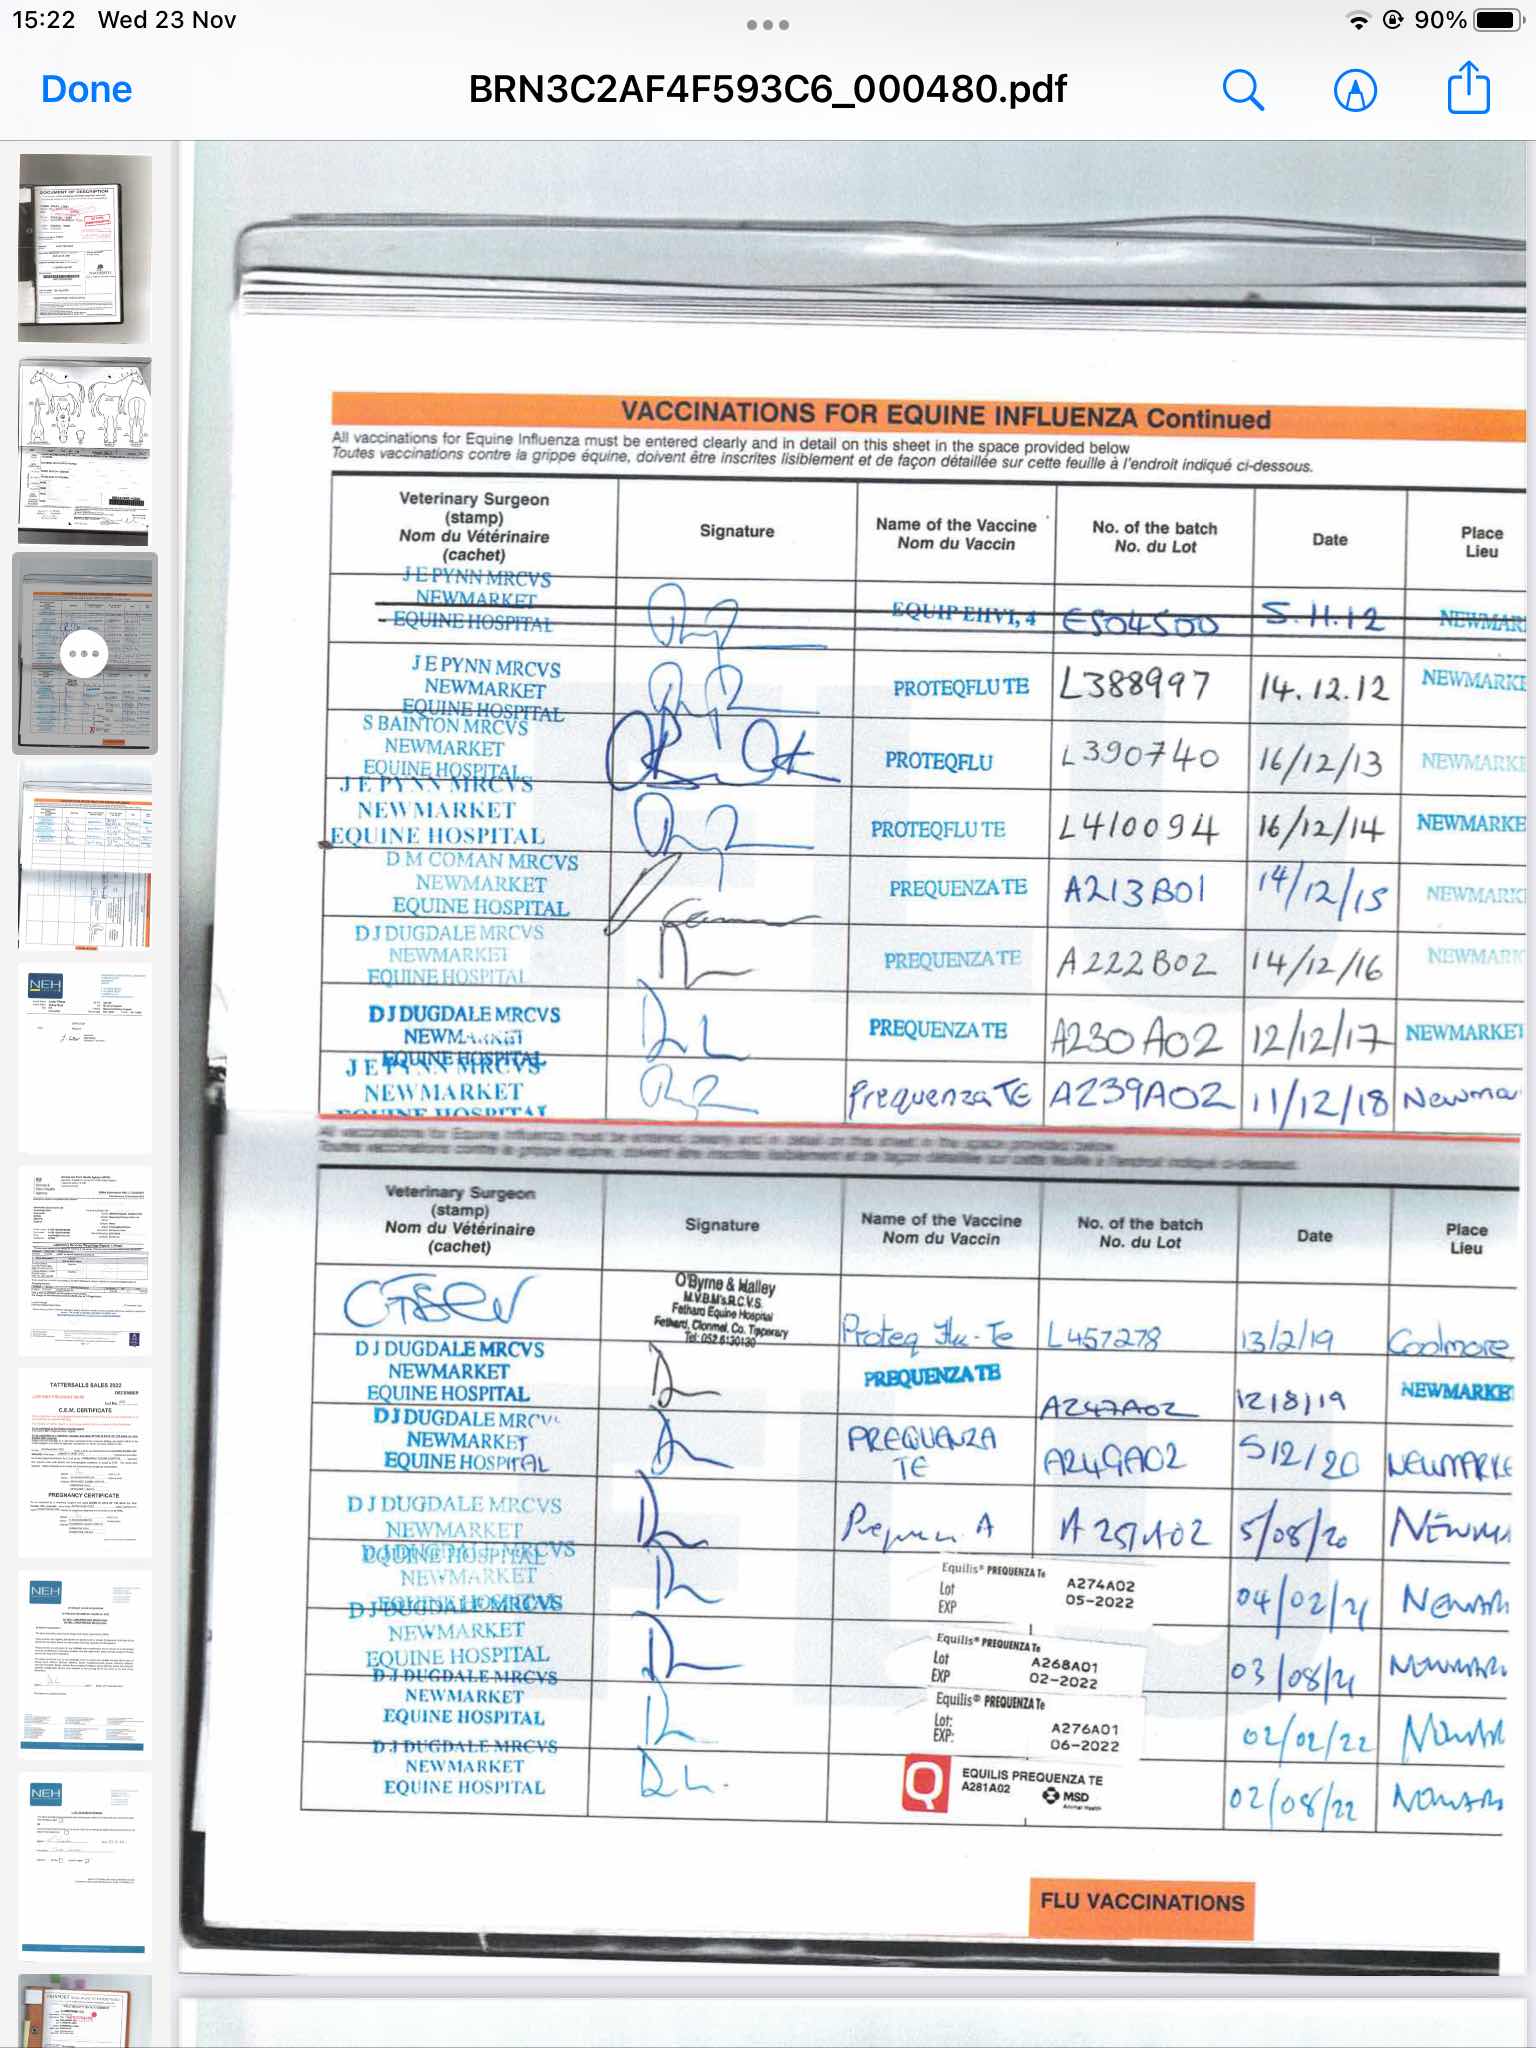 15:22 Wed 23 Nov
90%
Done
BRN3C2AF4F593C6_000480.pdf
VACCINATIONS FOR EQUINE INFLUENZA Continued
All vaccinations for Equine Influenza must be entered clearly and in detail on this sheet in the space provided below
Toutes vaccinations contre la grippe équine, doivent être inscrites lisiblement et de façon détaillée sur cette feuille à l'endroit indiqué ci-dessous.
Veterinary Surgeon (stamp) Nom du Vétérinaire (cachet) Signature Name of the Vaccine Nom du Vaccin No. of the batch No. du Lot Date Place Lieu
J E PYNN MRCVS NEWMARKET EQUINE HOSPITAL EQUIP EHVI, 4 E504500 5.11.12 NEWMAR
J E PYNN MRCVS NEWMARKET EQUINE HOSPITAL PROTEQFLU TE L388997 14.12.12 NEWMARKE
S BAINTON MRCVS NEWMARKET EQUINE HOSPITAL PROTEQFLU L390740 16/12/13 NEWMARKE
J E PYNN MRCVS NEWMARKET EQUINE HOSPITAL PROTEQFLU TE L410094 16/12/14 NEWMARKE
D M COMAN MRCVS NEWMARKET EQUINE HOSPITAL PREQUENZA TE A213B01 14/12/15 NEWMARK
D J DUGDALE MRCVS NEWMARKET EQUINE HOSPITAL PREQUENZA TE A222B02 14/12/16 NEWMARK
D J DUGDALE MRCVS NEWMARKET EQUINE HOSPITAL PREQUENZA TE A230A02 12/12/17 NEWMARKET
J E PYNN MRCVS NEWMARKET EQUINE HOSPITAL Prequenza TE A239A02 11/12/18 Newmar
All vaccinations for Equine Influenza must be entered clearly and in detail on this sheet in the space provided below
Veterinary Surgeon (stamp) Nom du Vétérinaire (cachet) Signature Name of the Vaccine Nom du Vaccin No. of the batch No. du Lot Date Place Lieu
O'Byrne & Halley M.V.B.M's.R.C.V.S. Fethard Equine Hospital Fethard, Clonmel, Co. Tipperary Tel: 052 6130130 Proteq Flu-Te L457278 13/2/19 Coolmore
D J DUGDALE MRCVS NEWMARKET EQUINE HOSPITAL PREQUENZA TE A247A02 12/8/19 NEWMARKE
D J DUGDALE MRCVS NEWMARKET EQUINE HOSPITAL PREQUENZA TE A249A02 5/2/20 NEWMARKE
D J DUGDALE MRCVS NEWMARKET EQUINE HOSPITAL A251A02 5/08/20
D J DUGDALE MRCVS NEWMARKET EQUINE HOSPITAL Equilis® PREQUENZA Te Lot A274A02 EXP 05-2022 04/02/21
D J DUGDALE MRCVS NEWMARKET EQUINE HOSPITAL Equilis® PREQUENZA Te Lot A268A01 EXP 02-2022 03/08/21
D J DUGDALE MRCVS NEWMARKET EQUINE HOSPITAL Equilis® PREQUENZA Te Lot: A276A01 EXP: 06-2022 02/02/22
D J DUGDALE MRCVS NEWMARKET EQUINE HOSPITAL Q EQUILIS PREQUENZA TE A281A02 MSD Animal Health 02/08/22
FLU VACCINATIONS